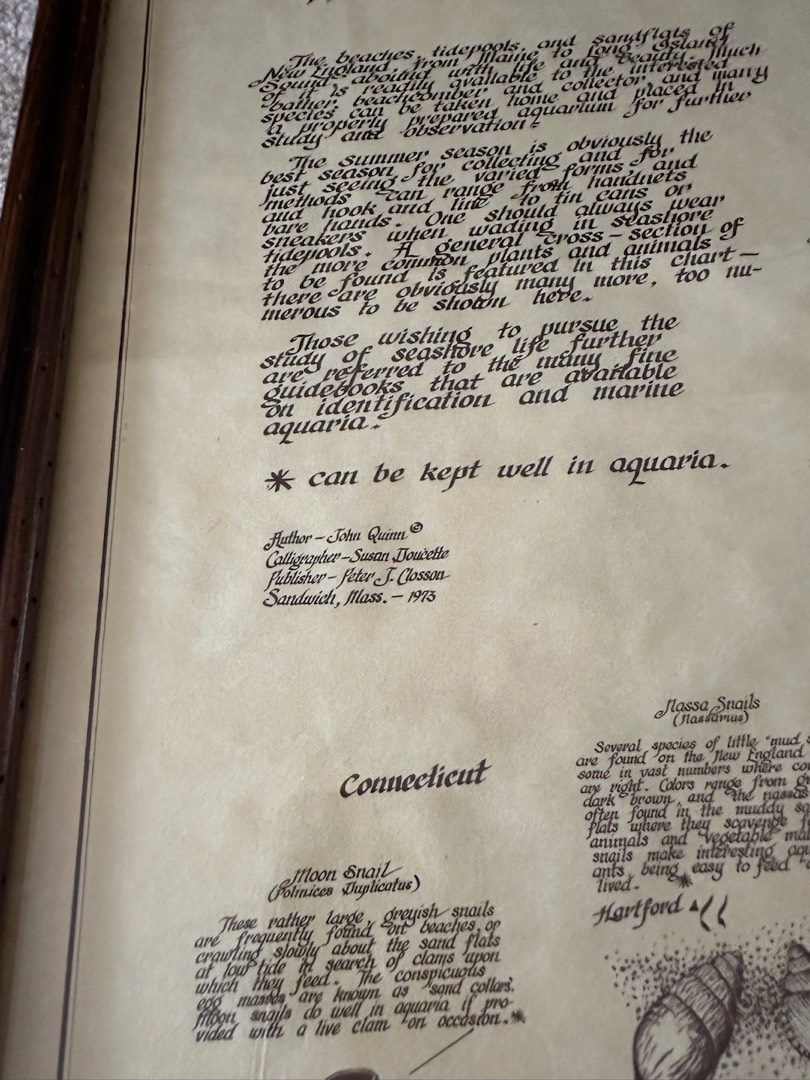 The beaches, tidepools, and sandflats of
New England, from Maine to Long Island
Sound, abound with life and beauty. Much
of it is readily available to the interested
bather, beachcomber and collector, and many
species can be taken home and placed in
a properly prepared aquarium for further
study and observation.
The summer season is obviously the
best season for collecting and for
just seeing the varied forms, and
methods can range from handnets
and hook and line to tin cans or
bare hands. One should always wear
sneakers when wading in seashore
tidepools. A general cross-section of
the more common plants and animals
to be found is featured in this chart—
there are obviously many more, too nu-
merous to be shown here.
Those wishing to pursue the
study of seashore life further
are referred to the many fine
guidebooks that are available
on identification and marine
aquaria.
* can be kept well in aquaria.
Author - John Quinn ©
Calligrapher - Susan Doucette
Publisher - Peter J. Closson
Sandwich, Mass. - 1973
Connecticut
Nassa Snails
(Nassarius)
Several species of little "mud
are found on the New England
some in vast numbers where
are right. Colors range from
dark brown, and the nassas
often found in the muddy
flats where they scavenge
animals and vegetable
snails make interesting
ants, being easy to feed
lived. *
Hartford
Moon Snail
(Polinices Duplicatus)
These rather large, greyish snails
are frequently found on beaches, or
crawling slowly about the sand flats
at low tide in search of clams upon
which they feed. The conspicuous
egg masses are known as "sand collars".
Moon snails do well in aquaria if pro-
vided with a live clam on occasion. *